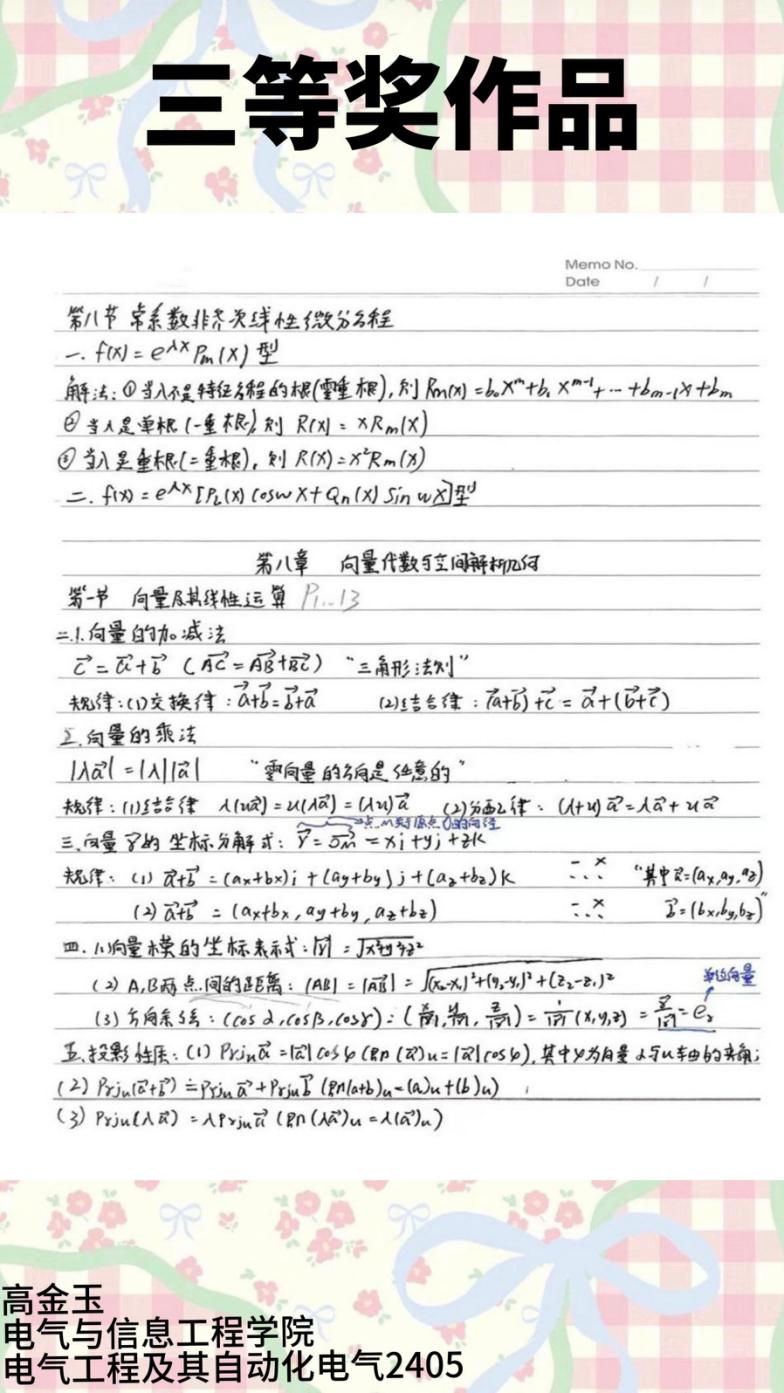 三等奖作品
Memo No.
Date / /
第八节 常系数非齐次线性微分方程
一. f(x) = e^λx Pm(x) 型
解法: ① 当λ不是特征方程的根(零重根), 则 Rm(x) = b₀x^m + b₁x^m-1 + … + bm-1x + bm
② 当λ是单根(一重根), 则 R(x) = xRm(x)
③ 当λ是重根(二重根), 则 R(x) = x²Rm(x)
二. f(x) = e^λx [PL(x) cosωx + Qn(x) sin ωx] 型
第八章 向量代数与空间解析几何
第一节 向量及其线性运算 P1…13
二.1.向量的加减法
c⃗ = a⃗ + b⃗ (AC⃗ = AB⃗ + BC⃗) “三角形法则”
规律: (1)交换律: a⃗+b⃗=b⃗+a⃗ (2)结合律: (a⃗+b⃗)+c⃗ = a⃗+(b⃗+c⃗)
2.向量的乘法
|λa⃗| = |λ||a⃗| “零向量的方向是任意的”
规律: (1)结合律 λ(ua⃗) = u(λa⃗) = (λu)a⃗ (2)分配律: (λ+u)a⃗ = λa⃗ + ua⃗
点M关于原点O的向径
三.向量r⃗的坐标分解式: r⃗ = OM⃗ = xi + yj + zk
规律: (1) a⃗+b⃗ = (ax+bx)i + (ay+by)j + (az+bz)k “其中a⃗=(ax,ay,az)
(2) a⃗+b⃗ = (ax+bx, ay+by, az+bz) b⃗=(bx,by,bz)”
四. (1)向量模的坐标表示式: |r⃗| = √x²+y²+z²
(2) A,B两点间的距离: |AB| = |AB⃗| = √(x₂-x₁)²+(y₂-y₁)²+(z₂-z₁)² 单位向量
(3) 方向系弦: (cosα, cosβ, cosγ) = (x/|r⃗|, y/|r⃗|, z/|r⃗|) = 1/|r⃗| (x,y,z) = r⃗/|r⃗| = er
五.投影性质: (1) Prjua⃗ = |a⃗|cosφ (即(a⃗)u = |a⃗|cosφ), 其中φ为向量a与u轴的夹角;
(2) Prju(a⃗+b⃗) = Prjua⃗ + Prjub⃗ (即(a+b)u = (a)u + (b)u)
(3) Prju(λa⃗) = λPrjua⃗ (即(λa⃗)u = λ(a⃗)u)
高金玉
电气与信息工程学院
电气工程及其自动化电气2405